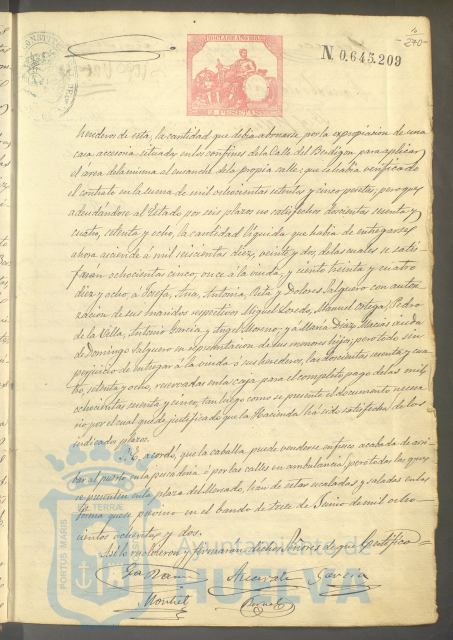 270
N. 0.645.209
herederos de esta, la cantidad que debia abonarse por la expropiacion de una
casa accesoria situada en los confines de la Calle del Berdigon, para aplicar
el area de la misma al ensanche de la propia calle; que se habia verificado
el contrato en la suma de mil ochocientas setenta y cinco pesetas, pero que
adeudandose al Estado por seis plazos no satisfechos doscientas sesenta y
cuatro, setenta y ocho, la cantidad líquida que habia de entregarse
ahora asciende á mil seiscientas diez, veinte y dos, de las cuales se satis
farán ochocientas cinco, once á la viuda, y ciento treinta y cuatro
diez y ocho, á Josefa, Ana, Antonia, Rita y Dolores Salguero con autori
zacion de sus maridos respectivos Miguel Loredo, Manuel Ortega, Pedro
de la Villa, Antonio Garcia y Angel Moreno; y á Maria Diaz Macias viuda
de Domingo Salguero en representacion de sus menores hijos; pero todo sin
perjuicio de entregar á la viuda ó sus herederos, las doscientas sesenta y cua
tro, setenta y ocho, reservadas en la caja para el completo pago de las mil
ochocientas setenta y cinco, tan luego como se presente el documento necesa
rio por el cual quede justificado que la Hacienda há sido satisfecha de los
indicados plazos.
Se acordó, que la caballa puede venderse en fresco acabada de arri
bar al puerto en la pescadería ó por las calles en ambulancia; pero todas las que
se presenten en la plaza del Mercado, han de estar escaladas y saladas en la
forma que se previno en el bando de trece de Junio de mil ocho
cientos ochenta y dos.
Asi lo resolvieron y firmaron dichos Señores de que Certifico=
Garcia
Montiel
PORTUS MARIS
TERRAE
Ayuntamiento de
HUELVA